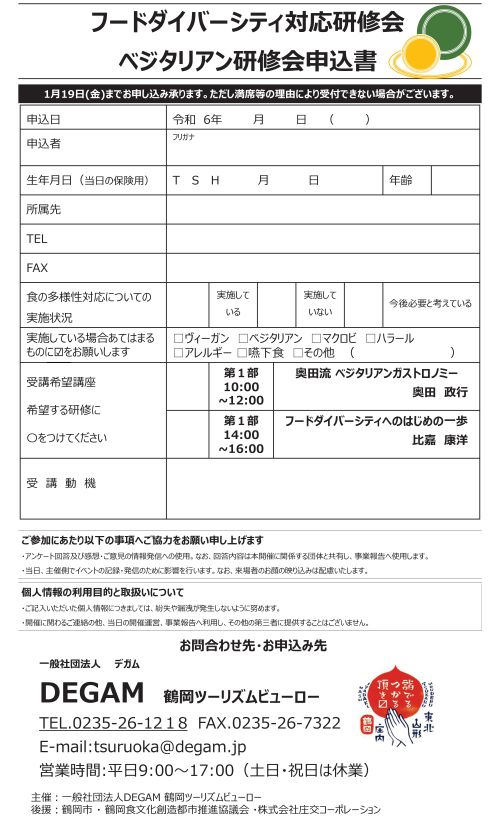 フードダイバーシティ対応研修会
ベジタリアン研修会申込書
1月19日(金)までお申し込み承ります。ただし満席等の理由により受付できない場合がございます。
申込日 令和 6年 月 日 ( )
申込者 フリガナ
生年月日（当日の保険用） T S H 月 日 年齢
所属先
TEL
FAX
食の多様性対応についての
実施状況
実施して
いる
実施して
いない
今後必要と考えている
実施している場合あてはまる
ものに☑をお願いします
□ヴィーガン □ベジタリアン □マクロビ □ハラール
□アレルギー □嚥下食 □その他 ( )
受講希望講座
希望する研修に
〇をつけてください
第１部
10:00
~12:00
奥田流 ベジタリアンガストロノミー
奥田 政行
第１部
14:00
~16:00
フードダイバーシティへのはじめの一歩
比嘉 康洋
受 講 動 機
ご参加にあたり以下の事項へご協力をお願い申し上げます
・アンケート回答及び感想・ご意見の情報発信への使用。なお、回答内容は本開催に関係する団体と共有し、事業報告へ使用します。
・当日、主催側でイベントの記録・発信のために影響を行います。なお、来場者のお顔の映り込みは配慮いたします。
個人情報の利用目的と取扱いについて
・ご記入いただいた個人情報につきましては、紛失や漏洩が発生しないように努めます。
・開催に関わるご連絡の他、当日の開催運営、事業報告へ利用し、その他の第三者に提供することはございません。
お問合わせ先・お申込み先
一般社団法人 デガム
DEGAM 鶴岡ツーリズムビューロー
TEL.0235-26-1218 FAX.0235-26-7322
E-mail:tsuruoka@degam.jp
営業時間:平日9:00～17:00（土日・祝日は休業）
詣でる
つかる
頂きます
東北
山形
庄内
鶴岡
主催：一般社団法人DEGAM 鶴岡ツーリズムビューロー
後援：鶴岡市・鶴岡食文化創造都市推進協議会・株式会社庄交コーポレーション